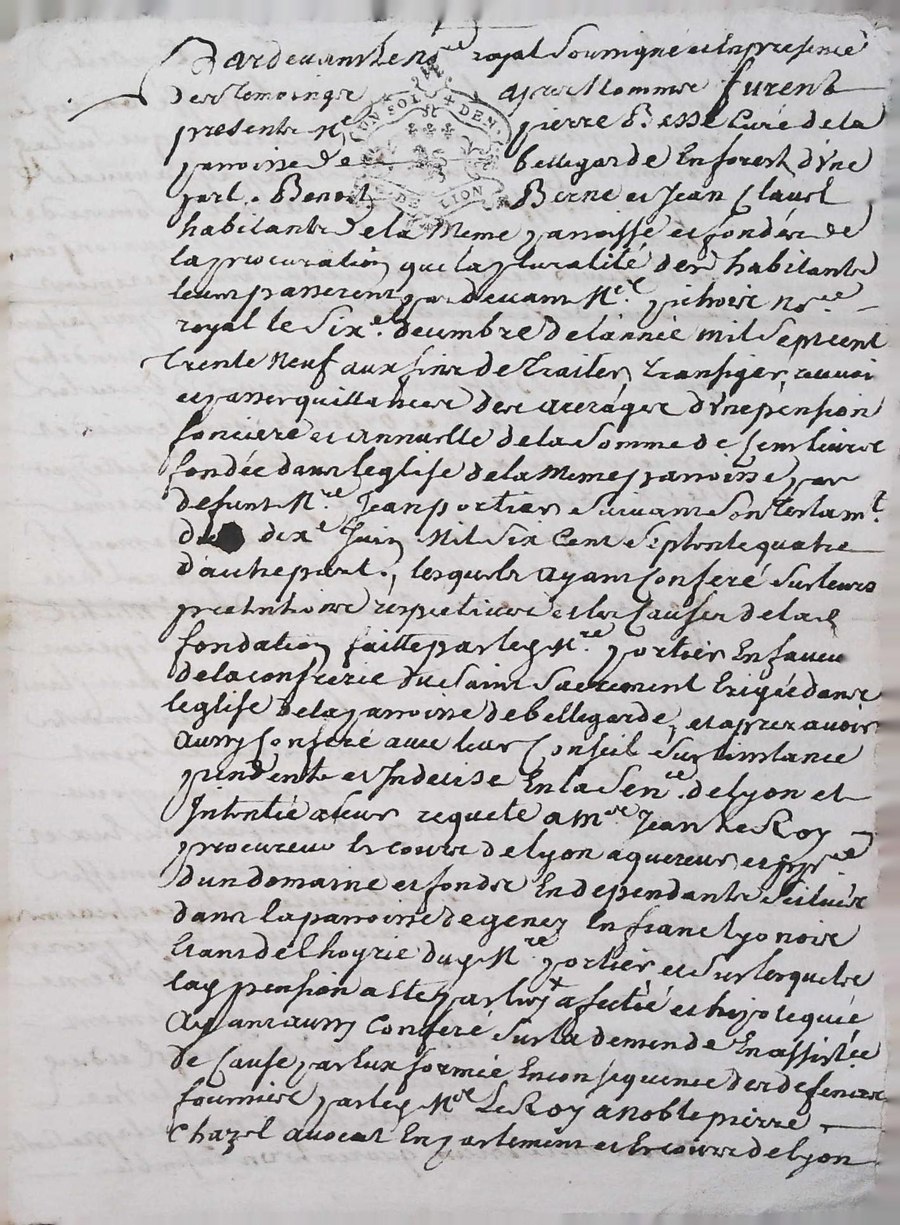 Pardevant Le no.re royal Soussigné et En presence
des temoings apres Nommes furent
UN SOL DEN.
presents M.re pierre Besse Curé de la
DE LION
parroisse de bellegarde En forest d'Une
part. Benoit Berne et Jean Clauel
habitants de la Meme parroisse et fondés de
la procuration que la pluralité des habitants
leurs passerent par devant M.re no.re
royal le Six.e decembre de l'année mil Sept cent
trente Neuf aux fins de traiter, transiger, recevoir
et passer quittances des arrerages d'Une pension
fonciere et annuelle de la Somme de Cent livres
fondée dans l'eglise de la Meme parroisse par
defunt M.re Jean portier Suivant Son testam.t
du dix.e Juin Mil Six Cent Septente quatre
d'autre part, lesquels ayant Conferé Sur leurs
pretentions respectives et les Causes de la d.
fondation faitte par led. M.re portier En faveur
de la confrerie du Saint Sacrement Erigée dans
l'eglise de la parroisse de bellegarde, et apres avoir
aussy Conferé avec leur Conseil Sur l'instance
pendente et Indecise En la Sen.ce de Lyon et
Intentée a leur requete a M.re Jean Le Roy
procureur Es cours de Lyon aquereur et
d'un domaine et fonds En dependants Scitués
dans la parroisse de genay En franc lyonnois
Etant de l'hoyrie dud. M.re portier et Sur lesquels
lad. pension a eté par luy afectée et hypotequée
ayant aussy Conferé Sur la demende En assistée
de Cause par Eux formée En consequence des defenses
fournies par led. M.re Le Roy a noble pierre
Chazel avocat En parlement et Es cours de Lyon